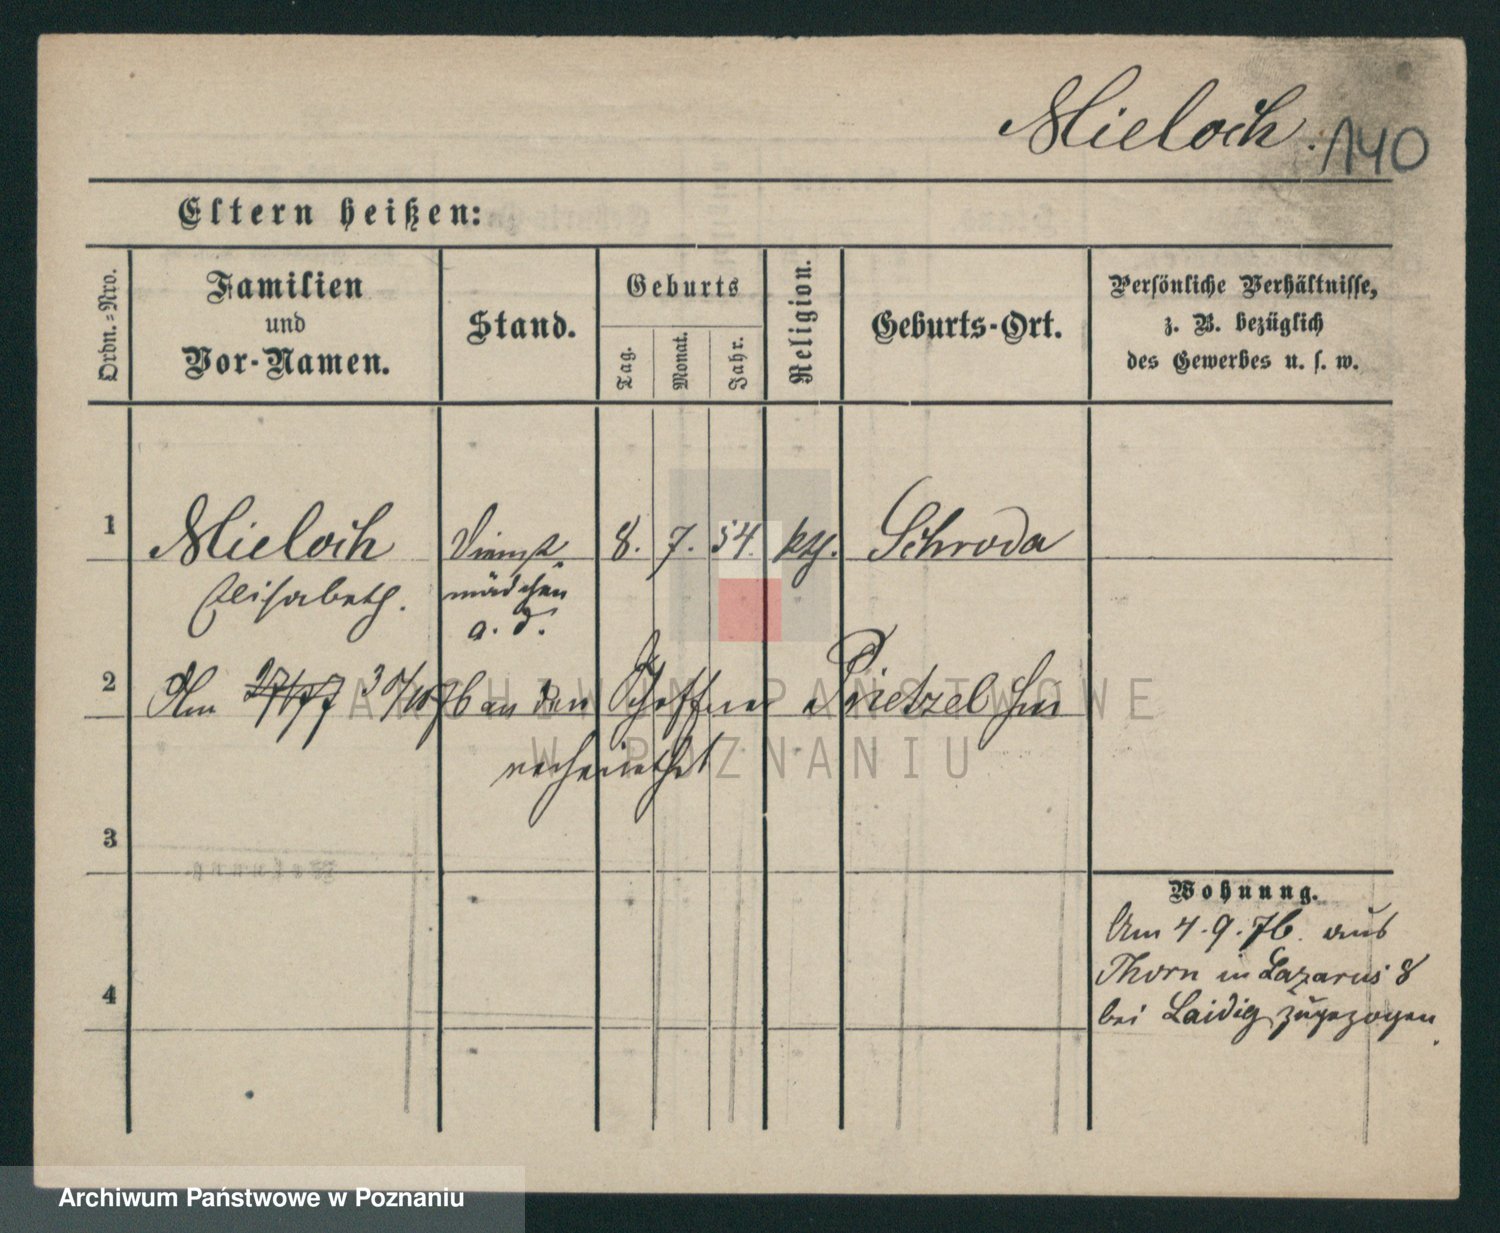 Mieloch. 140
Eltern heißen:
Ordn.-Nro.
Familien
und
Vor-Namen.
Stand.
Geburts
Tag.
Monat.
Jahr.
Religion.
Geburts-Ort.
Persönliche Verhältnisse,
z. B. bezüglich
des Gewerbes u. s. w.
1 Mieloch Dienst 8. 7. 54. kth. Schroda
Elisabeth. mädchen
a. d.
2 Am 27/1 77 30/10 76 an den Schaffner Prietzel hier
verheirathet
3
4
Wohnung.
Am 4.9.76. aus
Thorn in Lazarus 8
bei Laidig zugezogen.
ARCHIWUM PAŃSTWOWE
W POZNANIU
Archiwum Państwowe w Poznaniu